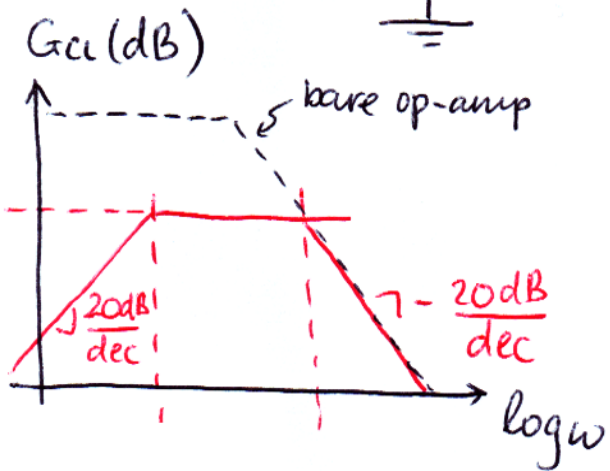 Gcl (dB)
bare op-amp
20dB
dec
- 20dB
dec
logω